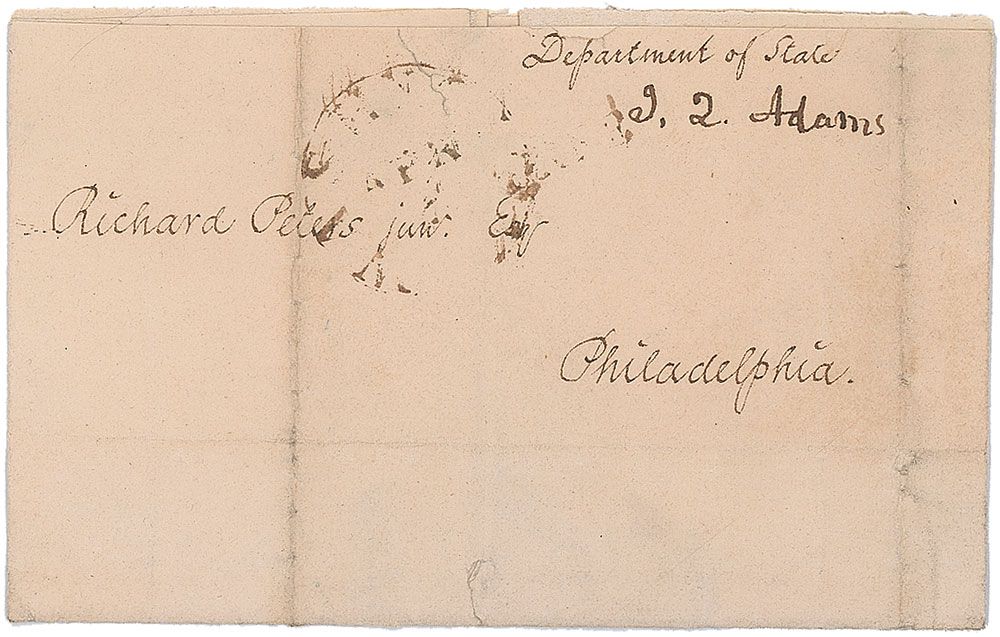 Department of State
J. Q. Adams
Richard Peters junr. Esq
Philadelphia.